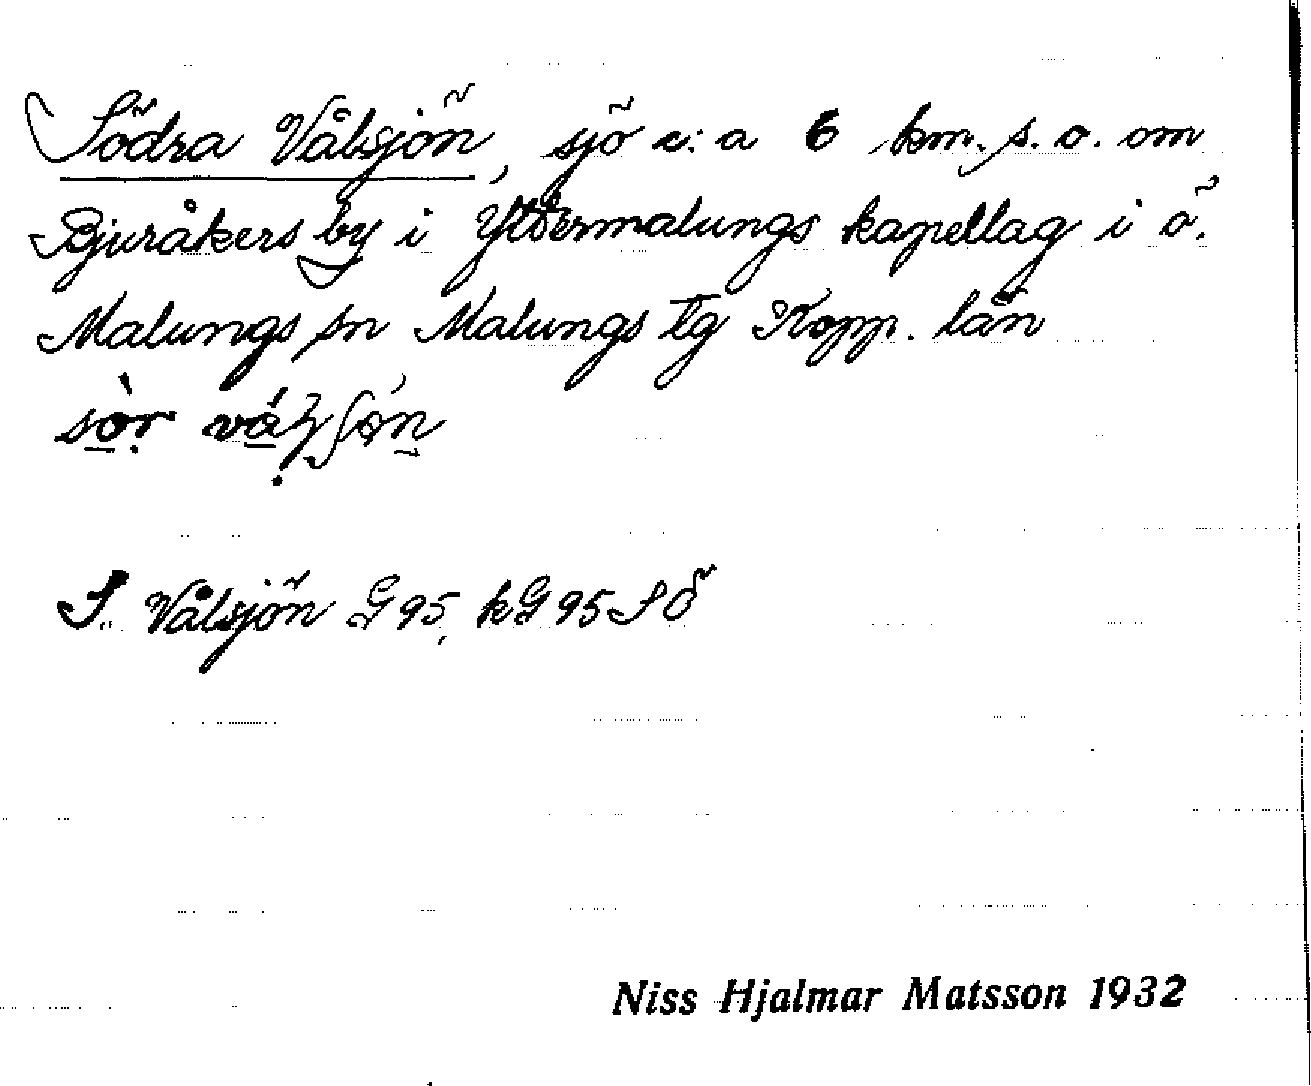 Södra Vålsjön, sjö c:a 6 km. s. o. om
Bjuråkers by i Yttermalungs kapellag i ö.
Malungs sn Malungs tg Kopp. län
S. Vålsjön G95, kG95SÖ
Niss Hjalmar Matsson 1932